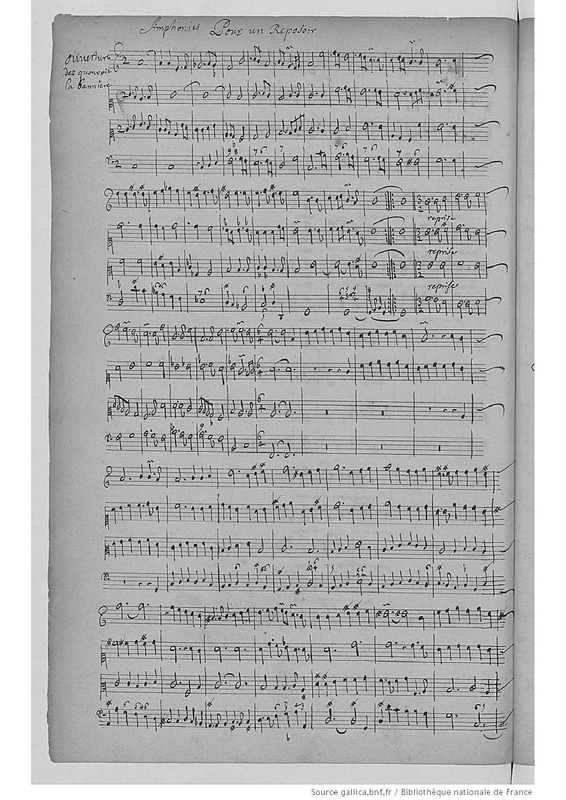 Simphonies Pour un Reposoir
ouverture
dez quonvoit
la banniere
reprise
reprise
reprise
Source gallica.bnf.fr / Bibliothèque nationale de France